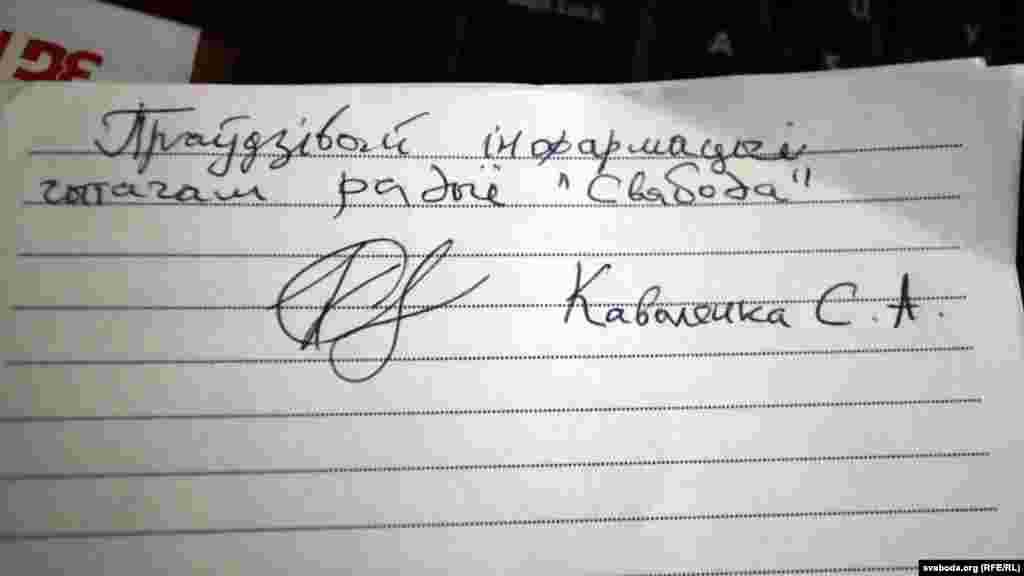 3G
Num Lock
А
Ц
У
К
Праўдзівой інфармацыі
чытачам радыё "Свабода"
Каваленка С. А.
svaboda.org (RFE/RL)